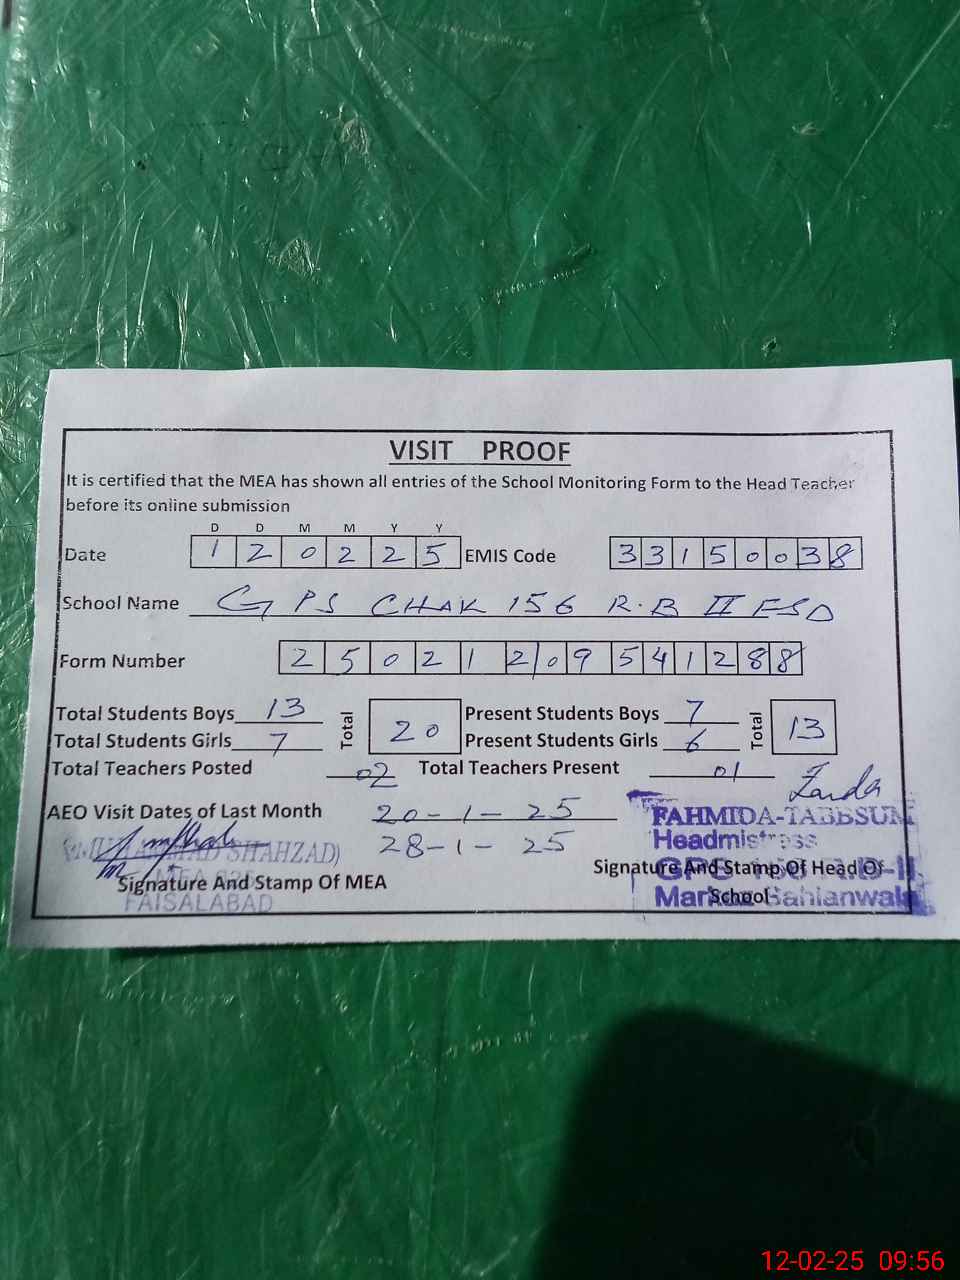 VISIT PROOF
It is certified that the MEA has shown all entries of the School Monitoring Form to the Head Teacher
before its online submission
D D M M Y Y
Date 1 2 0 2 2 5 EMIS Code 3 3 1 5 0 0 3 8
School Name GPS CHAK 156 R.B II FSD
Form Number 2 5 0 2 1 2 0 9 5 4 1 2 8 8
Total Students Boys 13 Total 20 Present Students Boys 7 Total 13
Total Students Girls 7 Present Students Girls 6
Total Teachers Posted 02 Total Teachers Present 01
AEO Visit Dates of Last Month 20-1-25
28-1-25
FAHMIDA-TABBSUM
Headmistress
SHAHZAD)
Signature And Stamp Of MEA
FAISALABAD
Signature And Stamp Of Head Of
School
GPS
Markaz
12-02-25 09:56